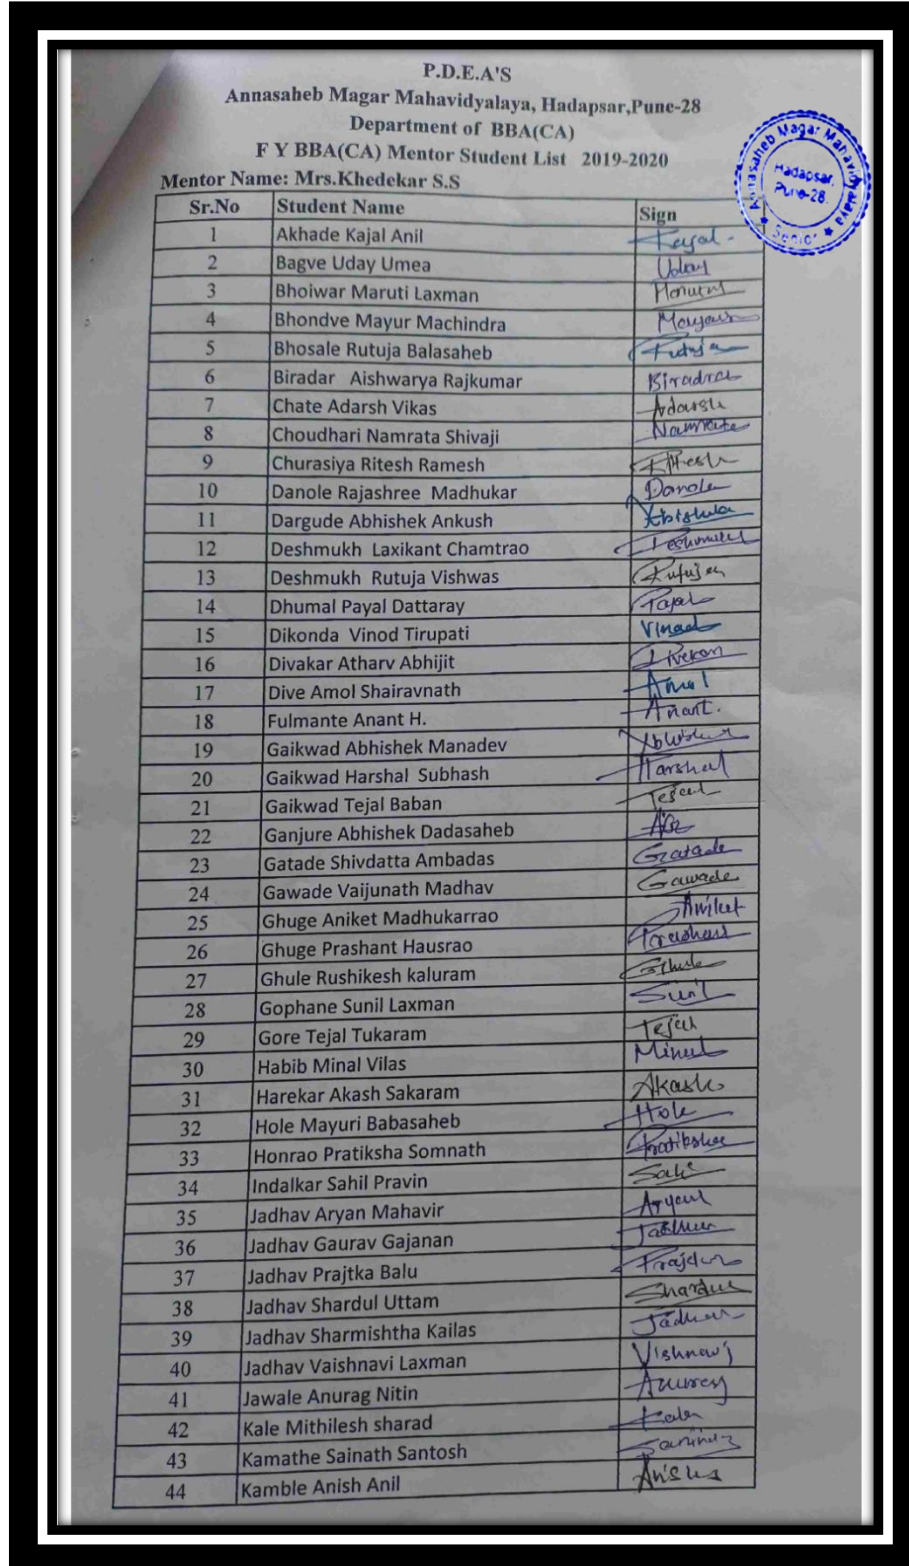 P.D.E.A'S
Annasaheb Magar Mahavidyalaya, Hadapsar,Pune-28
Department of BBA(CA)
F Y BBA(CA) Mentor Student List 2019-2020
Mentor Name: Mrs.Khedekar S.S
Annasaheb Magar Mahavidyalaya
Hadapsar,
Pune-28.
★ Senior ★
Sr.No Student Name Sign
1 Akhade Kajal Anil Kajal
2 Bagve Uday Umea Uday
3 Bhoiwar Maruti Laxman
4 Bhondve Mayur Machindra
5 Bhosale Rutuja Balasaheb Rutuja
6 Biradar Aishwarya Rajkumar
7 Chate Adarsh Vikas Adarsh
8 Choudhari Namrata Shivaji Namrata
9 Churasiya Ritesh Ramesh Ritesh
10 Danole Rajashree Madhukar Danole
11 Dargude Abhishek Ankush
12 Deshmukh Laxikant Chamtrao Deshmukh
13 Deshmukh Rutuja Vishwas
14 Dhumal Payal Dattaray Payal
15 Dikonda Vinod Tirupati Vinod
16 Divakar Atharv Abhijit
17 Dive Amol Shairavnath Amol
18 Fulmante Anant H. Anant.
19 Gaikwad Abhishek Manadev
20 Gaikwad Harshal Subhash Harshal
21 Gaikwad Tejal Baban Tejal
22 Ganjure Abhishek Dadasaheb
23 Gatade Shivdatta Ambadas Gatade
24 Gawade Vaijunath Madhav Gawade
25 Ghuge Aniket Madhukarrao Aniket
26 Ghuge Prashant Hausrao Prashant
27 Ghule Rushikesh kaluram Ghule
28 Gophane Sunil Laxman Sunil
29 Gore Tejal Tukaram Tejal
30 Habib Minal Vilas Minal
31 Harekar Akash Sakaram Akash
32 Hole Mayuri Babasaheb Hole
33 Honrao Pratiksha Somnath Pratiksha
34 Indalkar Sahil Pravin
35 Jadhav Aryan Mahavir Aryan
36 Jadhav Gaurav Gajanan Jadhav
37 Jadhav Prajtka Balu
38 Jadhav Shardul Uttam Shardul
39 Jadhav Sharmishtha Kailas Jadhav
40 Jadhav Vaishnavi Laxman Vishnavi
41 Jawale Anurag Nitin Anurag
42 Kale Mithilesh sharad Kale
43 Kamathe Sainath Santosh
44 Kamble Anish Anil Anish